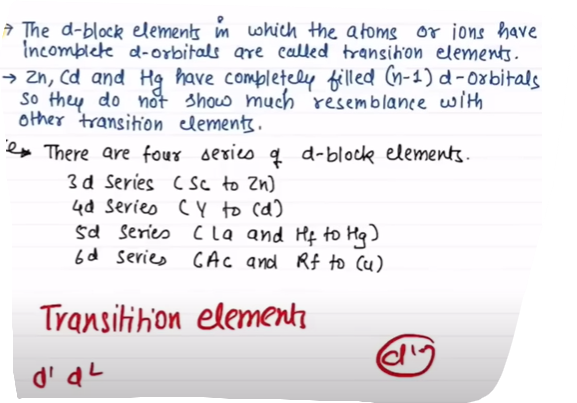 → The d-block elements in which the atoms or ions have
incomplete d-orbitals are called transition elements.
→ Zn, Cd and Hg have completely filled (n-1) d-orbitals
so they do not show much resemblance with
other transition elements.
There are four series of d-block elements.
3d Series (Sc to Zn)
4d Series (Y to Cd)
5d Series (La and Hf to Hg)
6d Series (Ac and Rf to Cu)
Transitition elements
d'